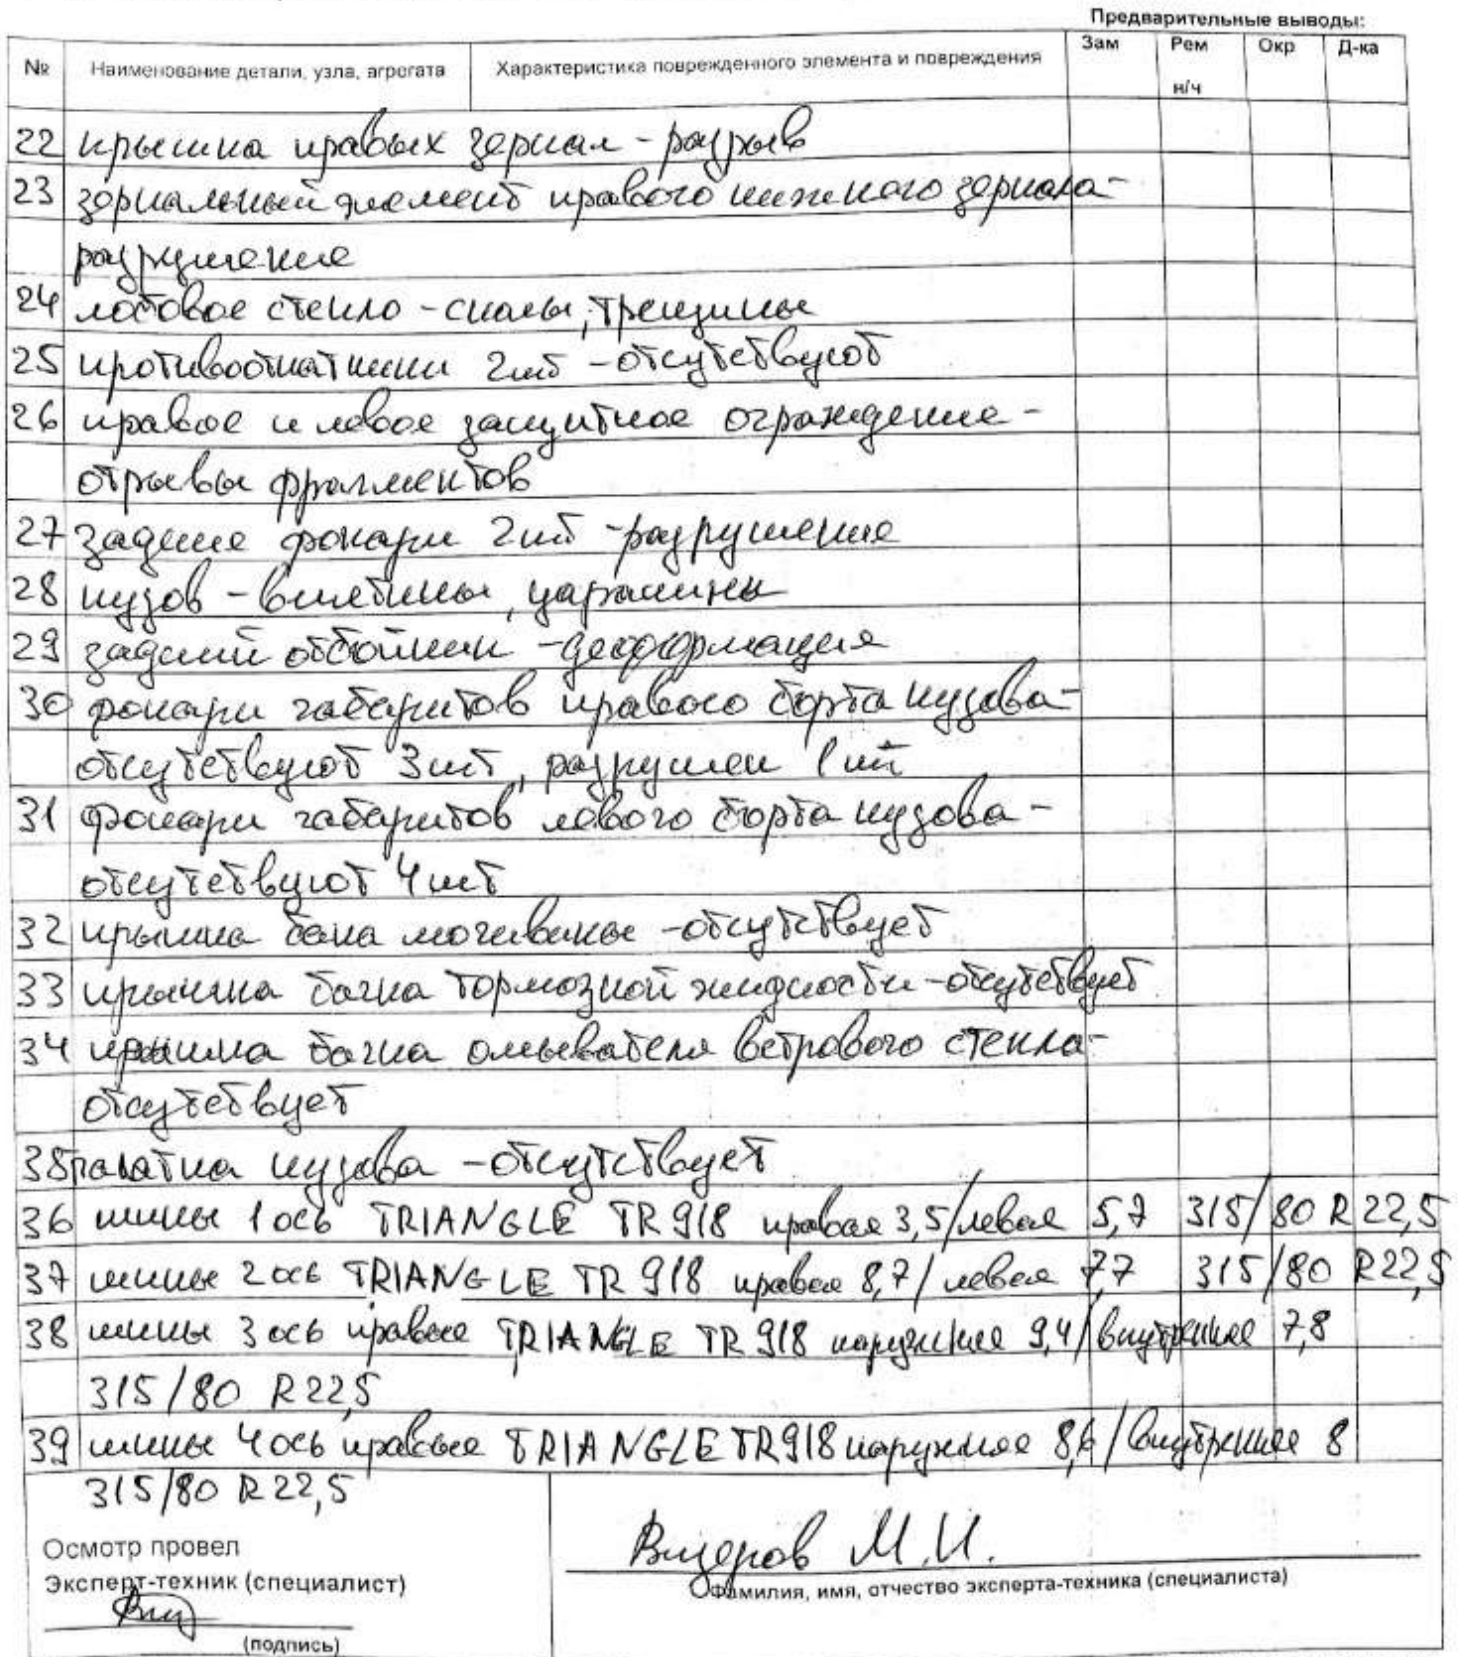 Предварительные выводы:
№ Наименование детали, узла, агрегата Характеристика поврежденного элемента и повреждения Зам Рем н/ч Окр Д-ка
22 крышка правых зеркал - разрыв
23 зеркальный элемент правого нижнего зеркала-
разрушение
24 лобовое стекло - сколы, трещины
25 противооткатники 2шт - отсутствуют
26 правое и левое защитное ограждение -
отрывы фрагментов
27 задние фонари 2шт - разрушение
28 кузов - вмятины, царапины
29 задний отбойник - деформация
30 фонари габаритов правого борта кузова-
отсутствуют 3шт, разрушен 1шт
31 фонари габаритов левого борта кузова -
отсутствуют 4шт
32 крышка бака мочевины - отсутствует
33 крышка бачка тормозной жидкости - отсутствует
34 крышка бачка омывателя ветрового стекла-
отсутствует
35 палатка кузова - отсутствует
36 шины 1 ось TRIANGLE TR 918 правая 3,5/левая 5,7 315/80 R 22,5
37 шины 2 ось TRIANGLE TR 918 правая 8,7/левая 7,7 315/80 R22,5
38 шины 3 ось правые TRIANGLE TR 918 наружная 9,4/внутренняя 7,8
315/80 R22,5
39 шины 4 ось правые TRIANGLE TR918 наружная /внутренняя 8
315/80 R22,5
Осмотр провел
Эксперт-техник (специалист)
(подпись)
М.И.
Фамилия, имя, отчество эксперта-техника (специалиста)